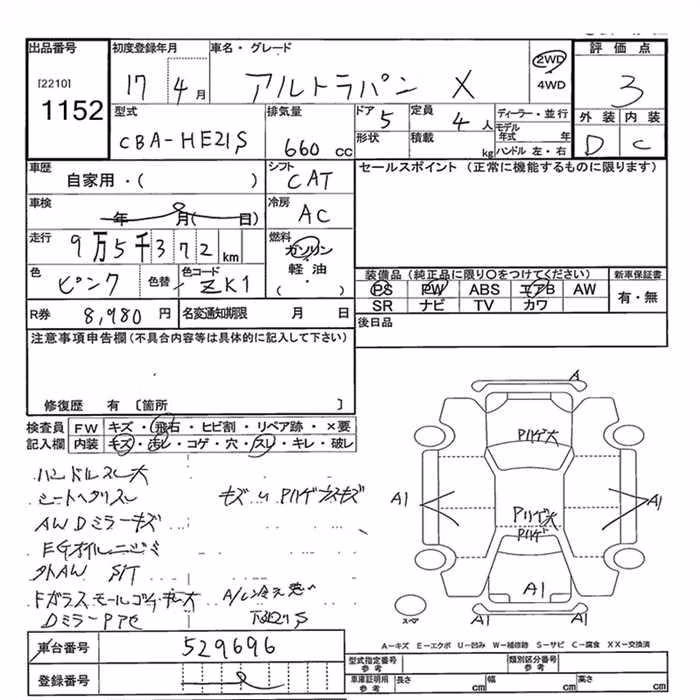 出品番号 初度登録年月 車名・グレード 評価点
[2210] 17 4月 アルトラパン X 2WD 4WD 3
1152
型式 排気量 ドア 定員 ディーラー・並行 外装 内装
CBA-HE21S 660cc 5 4人 モデル年式 年 D C
形状 積載 kg ハンドル 左・右
車歴 シフト セールスポイント (正常に機能するものに限ります)
自家用・( ) CAT
車検 冷房
年 月( 日) AC
走行 燃料
9万5千372km ガソリン
軽油
( ・ )
色 色替 色コード 装備品 (純正品に限り○をつけてください) 新車保証書
ピンク ZK1 PS PW ABS エアB AW 有・無
SR ナビ TV カワ
R券 8,980円 名変通知期限 月 日 後日品
注意事項申告欄(不具合内容等は具体的に記入して下さい)
修復歴 有 〔箇所 〕
検査員 FW キズ・飛石・ヒビ割・リペア跡・×要
記入欄 内装 キズ・汚レ・コゲ・穴・スレ・キレ・破レ
ハンドルスレ大
シートヘタリスレ
AWDミラーキズ
EGオイルニジミ
外AW S/T
A/C冷え悪い
A
Pハゲ大
A1 A1
Pハゲ大
Pハゲ
A1
A1 A1
スペア
A-キズ E-エクボ U-凹み W-補修跡 S-サビ C-腐食 XX-交換済
車台番号 529696
登録番号
型式指定番号 参考 類別区分番号 参考
車庫証明用 参考 長さ cm 幅 cm 高さ cm